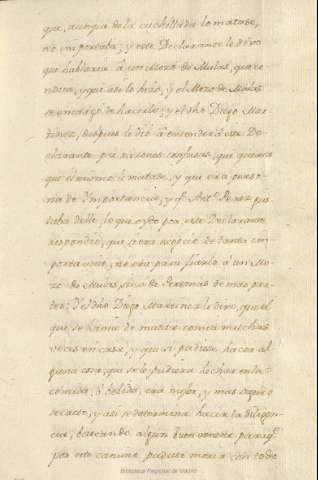 que, aunque de la cuchillada lo matase,
no importaba; y este Declarante le dixo
que hablaria à un Mozo de Mulas, que co-
nocia, y que asi lo hizo, y el Mozo de Mulas
se encargó de hacerlo; y el dho Diego Mar-
tinez, despues le dió à entender à este De-
clarante por razones confusas, que queria
que el mismo le matase, y que era perso-
na de importancia, y qe. Antº. Perez gus-
taba dello, lo que oydo por este Declarante
respondió, que si era negocio de tanta im-
portancia, no era para fiarlo à un Mo-
zo de Mulas, sino de Personas de mas pren-
das; Y el dho Diego Martinez le dixo, que el
que se havia de matar comia muchas
veces en casa, y que si pudiese hacer al-
guna cosa, que se le pudiera hechar en la
comida, ò bebida, era mejor, y mas seguro
secreto, y asi se determina hacer la diligen-
cia, buscando algun buen veneno para qe.
por este camino pudiese morir con todo
Biblioteca Regional de Madrid